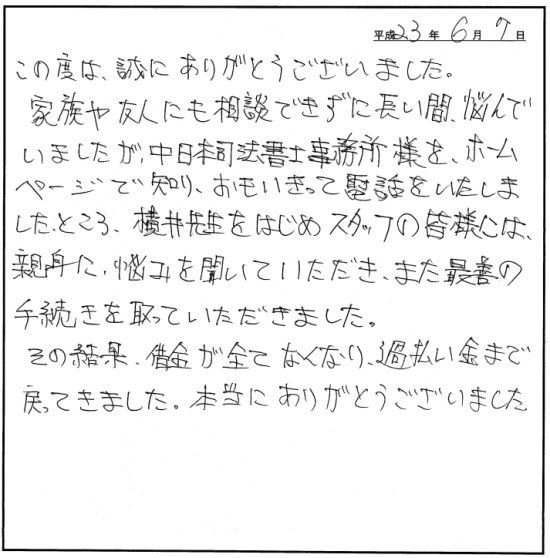 平成23年6月7日
この度は、誠にありがとうございました。
家族や友人にも相談できずに長い間、悩んで
いましたが、中日本司法書士事務所様を、ホーム
ページで知り、おもいきって電話をいたしま
したところ、横井先生をはじめスタッフの皆様には、
親身に、悩みを聞いていただき、また最善の
手続きを取っていただきました。
その結果、借金が全てなくなり、過払い金まで
戻ってきました。本当にありがとうございました